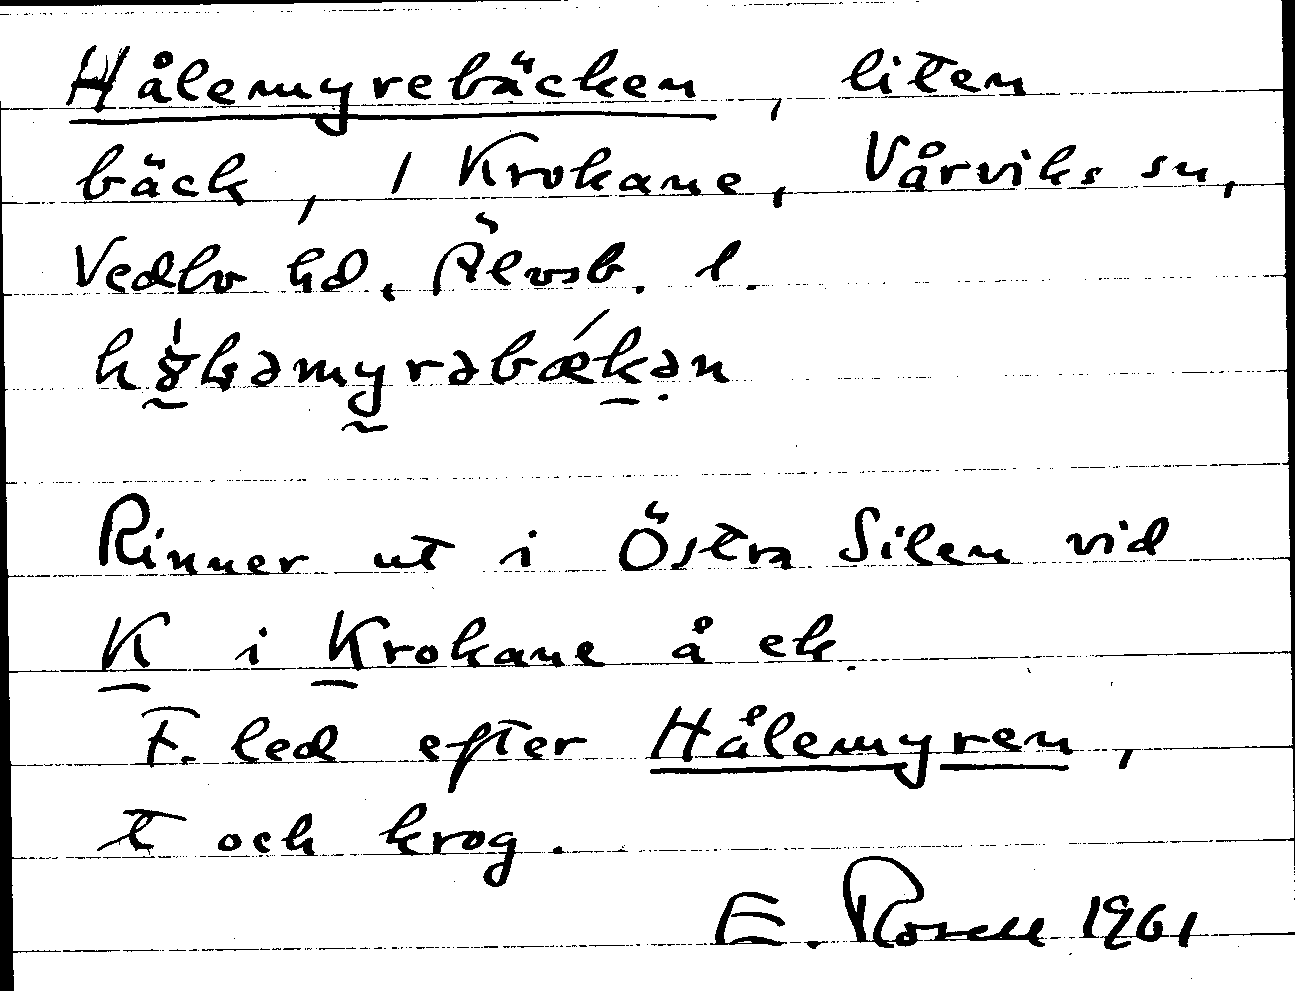 Hålemyrebäcken, liten
bäck, 1 Krokane, Vårviks sn,
Vedbo hd, Älvsb. l.
Rinner ut i Östra Silen vid
K i Krokane å ek.
F. led efter Hålemyren,
t och krog.
E. Rosell 1961